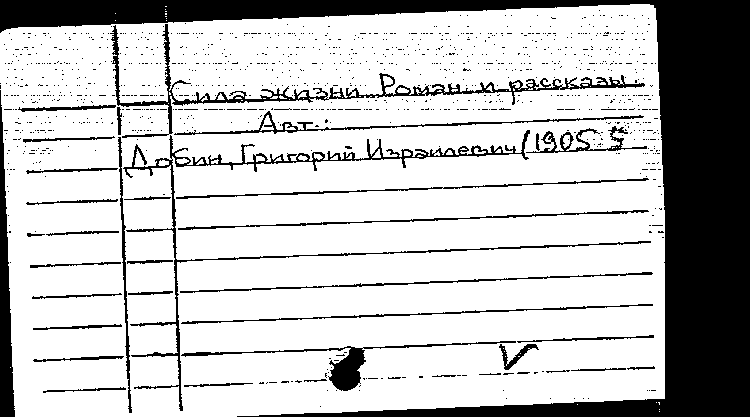 Сила жизни. Роман и рассказы.
Авт.:
Добин, Григорий Израилевич (1905